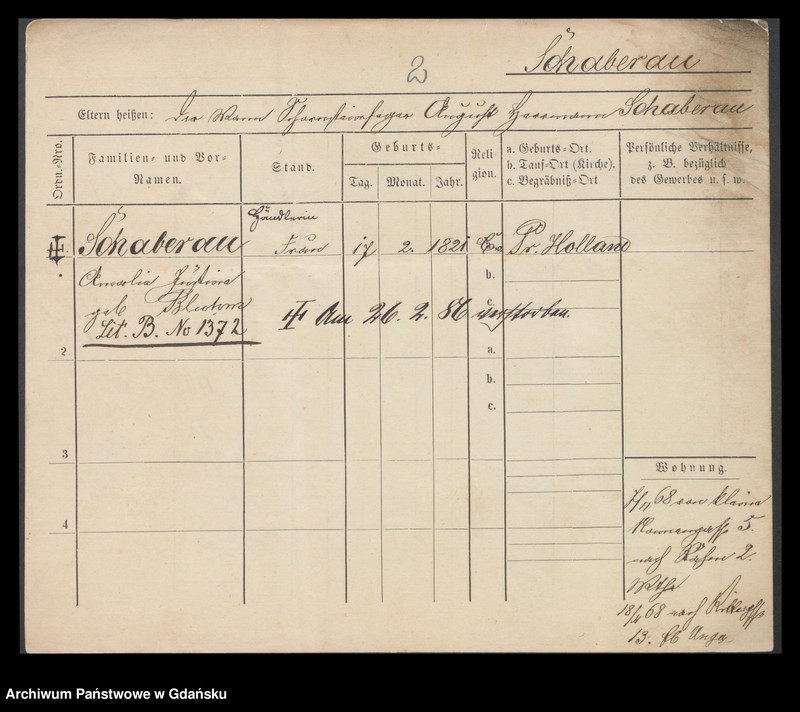 2
Schaberau
Eltern heißen: Die Wwe Schornsteinfeger August Herrmann Schaberau
Ordn.-Nro.
Familien- und Vor-
Namen.
Stand.
Geburts-
Tag.
Monat.
Jahr.
Reli-
gion.
a. Geburts-Ort.
b. Tauf-Ort (Kirche).
c. Begräbniß-Ort
Persönliche Verhältnisse,
z. B. bezüglich
des Gewerbes u. s. w.
Händlerin
1. Schaberau Frau 17 2. 1821 Ev. Pr. Holland
Amalia Justina
geb
Lit. B. No 1372
b.
c.
Am 26. 2. 86 verstorben.
2
a.
b.
c.
3
4
Wohnung.
7/11 68 von kleine
5.
nach 2.
18/ 68 nach
13.
Archiwum Państwowe w Gdańsku